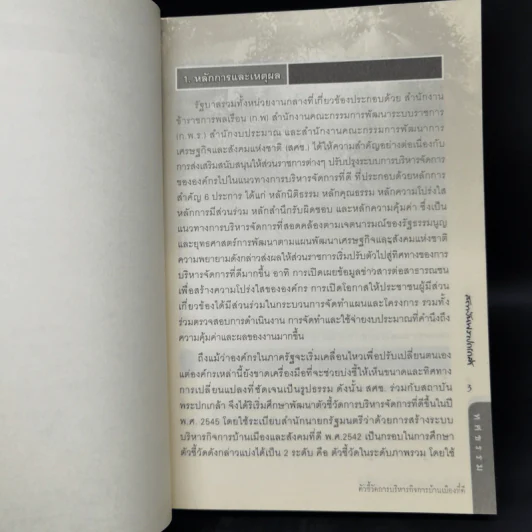 1. หลักการและเหตุผล
รัฐบาลรวมทั้งหน่วยงานกลางที่เกี่ยวข้องประกอบด้วย สำนักงาน
ข้าราชการพลเรือน (ก.พ) สำนักงานคณะกรรมการพัฒนาระบบราชการ
(ก.พ.ร.) สำนักงบประมาณ และสำนักงานคณะกรรมการพัฒนาการ
เศรษฐกิจและสังคมแห่งชาติ (สศช.) ได้ให้ความสำคัญอย่างต่อเนื่องกับ
การส่งเสริมสนับสนุนให้ส่วนราชการต่างๆ ปรับปรุงระบบการบริหารจัดการ
ขององค์กรไปในแนวทางการบริหารจัดการที่ดี ที่ประกอบด้วยหลักการ
สำคัญ 6 ประการ ได้แก่ หลักนิติธรรม หลักคุณธรรม หลักความโปร่งใส
หลักการมีส่วนร่วม หลักสำนึกรับผิดชอบ และหลักความคุ้มค่า ซึ่งเป็น
แนวทางการบริหารจัดการที่สอดคล้องตามเจตนารมณ์ของรัฐธรรมนูญ
และยุทธศาสตร์การพัฒนาตามแผนพัฒนาเศรษฐกิจและสังคมแห่งชาติ
ความพยายามดังกล่าวส่งผลให้ส่วนราชการเริ่มปรับตัวไปสู่ทิศทางของการ
บริหารจัดการที่ดีมากขึ้น อาทิ การเปิดเผยข้อมูลข่าวสารต่อสาธารณชน
เพื่อสร้างความโปร่งใสขององค์กร การเปิดโอกาสให้ประชาชนผู้มีส่วน
เกี่ยวข้องได้มีส่วนร่วมในกระบวนการจัดทำแผนและโครงการ รวมทั้ง
ร่วมตรวจสอบการดำเนินงาน การจัดทำและใช้จ่ายงบประมาณที่คำนึงถึง
ความคุ้มค่าและผลของงานมากขึ้น
ถึงแม้ว่าองค์กรในภาครัฐจะเริ่มเคลื่อนไหวเพื่อปรับเปลี่ยนตนเอง
แต่องค์กรเหล่านี้ยังขาดเครื่องมือที่จะช่วยบ่งชี้ให้เห็นขนาดและทิศทาง
การเปลี่ยนแปลงที่ชัดเจนเป็นรูปธรรม ดังนั้น สศช. ร่วมกับสถาบัน
พระปกเกล้า จึงได้ริเริ่มศึกษาพัฒนาตัวชี้วัดการบริหารจัดการที่ดีขึ้นในปี
พ.ศ. 2545 โดยใช้ระเบียบสำนักนายกรัฐมนตรีว่าด้วยการสร้างระบบ
บริหารกิจการบ้านเมืองและสังคมที่ดี พ.ศ.2542 เป็นกรอบในการศึกษา
ตัวชี้วัดดังกล่าวแบ่งได้เป็น 2 ระดับ คือ ตัวชี้วัดในระดับภาพรวม โดยใช้
สถาบันพระปกเกล้า
ทศธรรม
ตัวชี้วัดการบริหารกิจการบ้านเมืองที่ดี